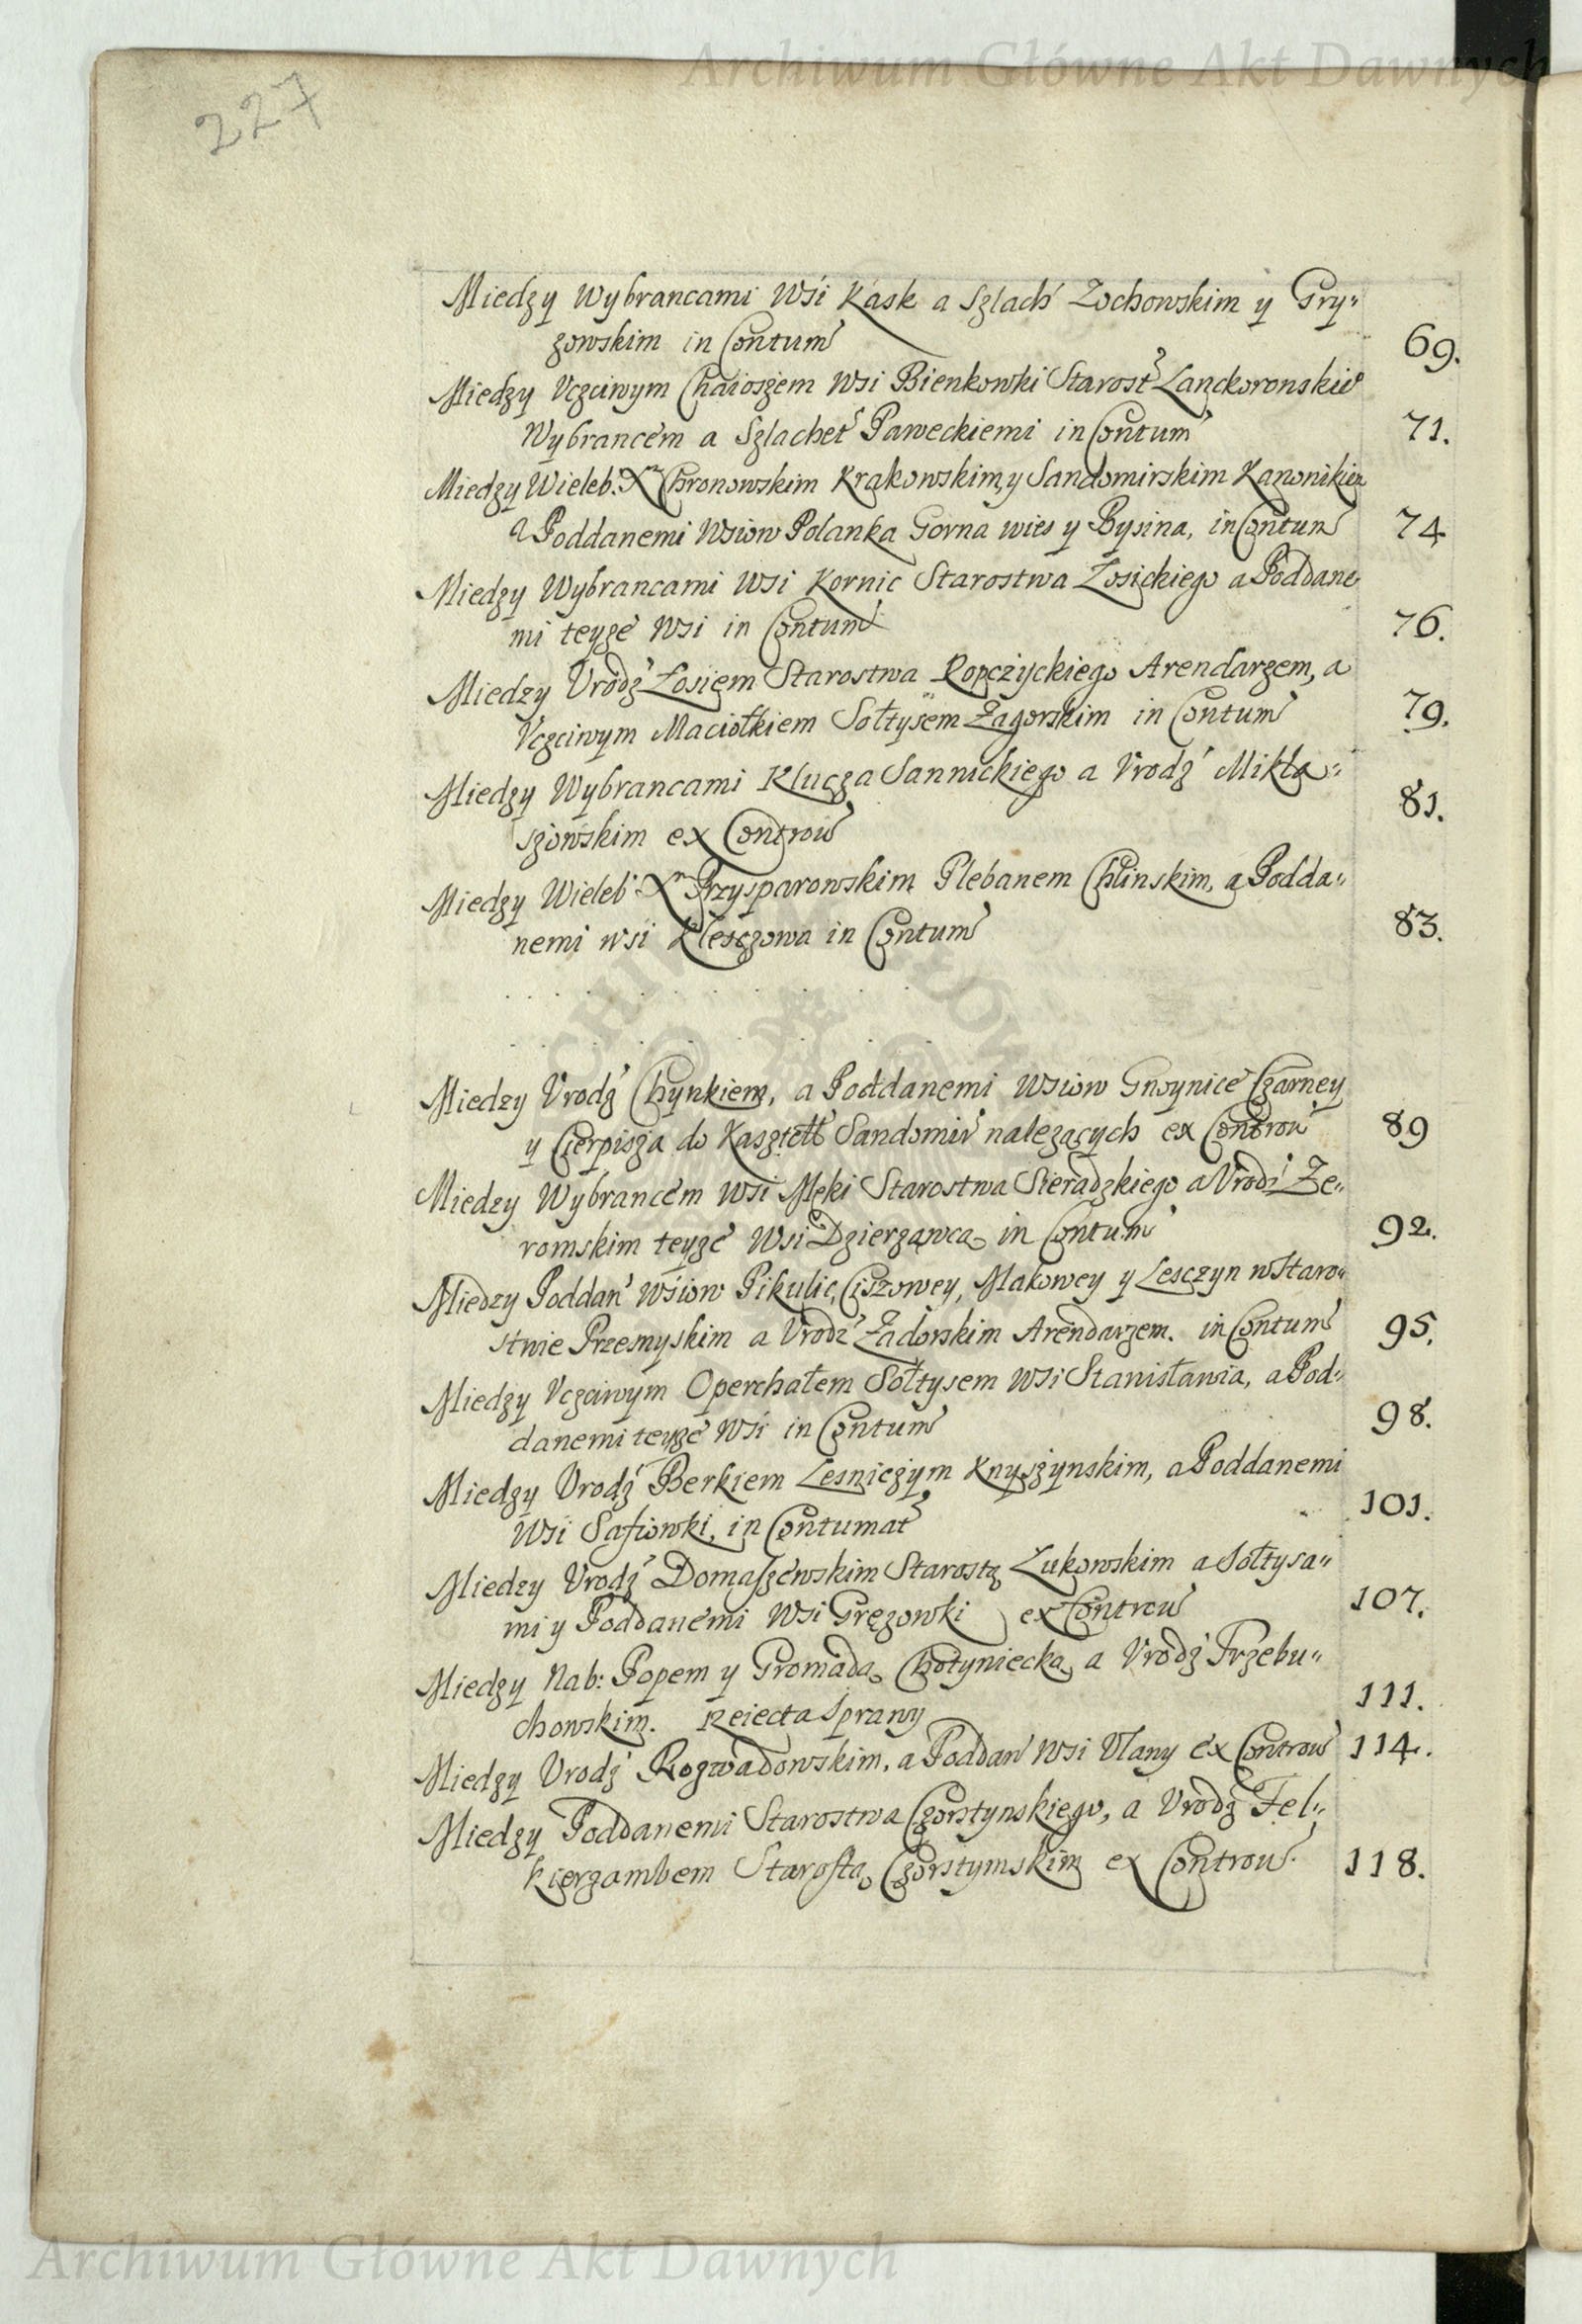 Archiwum Główne Akt Dawnych
227
Miedzy Wybrancami Wśi Kask a Szlach Zochowskim y Gry„
zowskim in Contum 69.
Miedzy Vczciwym Chaioszem Wsi Bienkowki Starost Lanckoronskie
Wybrancem a Szlachet Paweckiemi in Contum 71.
Miedzy Wieleb: X Chronowskim Krakowskim, y Sandomirskim Kanonikiem
a Poddanemi Wsiow Polanka Gorna wies y Bysina, in Contum 74
Miedzy Wybrancami Wsi Kornic Starostwa Łosickiego a Poddane
mi teyze Wsi in Contum 76.
Miedzy Vrodz Łosiem Starostwa Ropczyckiego Arendarzem, a
Vczciwym Maciołkiem Sołtysem Zagorskim in Contum 79.
Miedzy Wybrancami Klucza Sannickiego a Vrodz Mikła„
szowskim ex Controw 81.
Miedzy Wieleb X Przysparowskim Plebanem Chlinskim, a Podda„
nemi wsi Klesczowa in Contum 83.
Miedzy Vrodz Chynkiem, a Poddanemi Wsiow Gnoynice Czarney
y Cierpisza do Kasztell Sandomir nalezących ex Controw 89
Miedzy Wybrancem wsi Męki Starostwa Sieradzkiego a Vrodz Ze„
romskim teyze Wsi Dzierzawcą in Contum 92.
Miedzy Poddan Wsiow Pikulic, Ciszowey, Makowey y Lesczyn w Staro„
stwie Przemyskim a Vrodz Zadorskim Arendarzem. in Contum 95.
Miedzy Vczciwym Operchałem Sołtysem Wsi Stanisławia, a Pod„
danemi teyze Wsi in Contum 98.
Miedzy Vrodz Berkiem Lesniczym Knyszynskim, a Poddanemi
Wsi Safiowki, in Contumat 101.
Miedzy Vrodz Domaszewskim Starostą Łukowskim a Sołtysa„
mi y Poddanemi Wsi Gręzowki ex Controw 107.
Miedzy Nab: Popem y Gromadą Chotyniecką a Vrodz Trzebu„
chowskim. Reiecta sprawy 111.
Miedzy Vrodz Rozwadowskim, a Poddan Wsi Vlany ex Controw 114.
Miedzy Poddanemi Starostwa Czorstynskiego, a Vrodz Fel„
kierzambem Starostą Czorstymskim ex Controw. 118.
Archiwum Główne Akt Dawnych